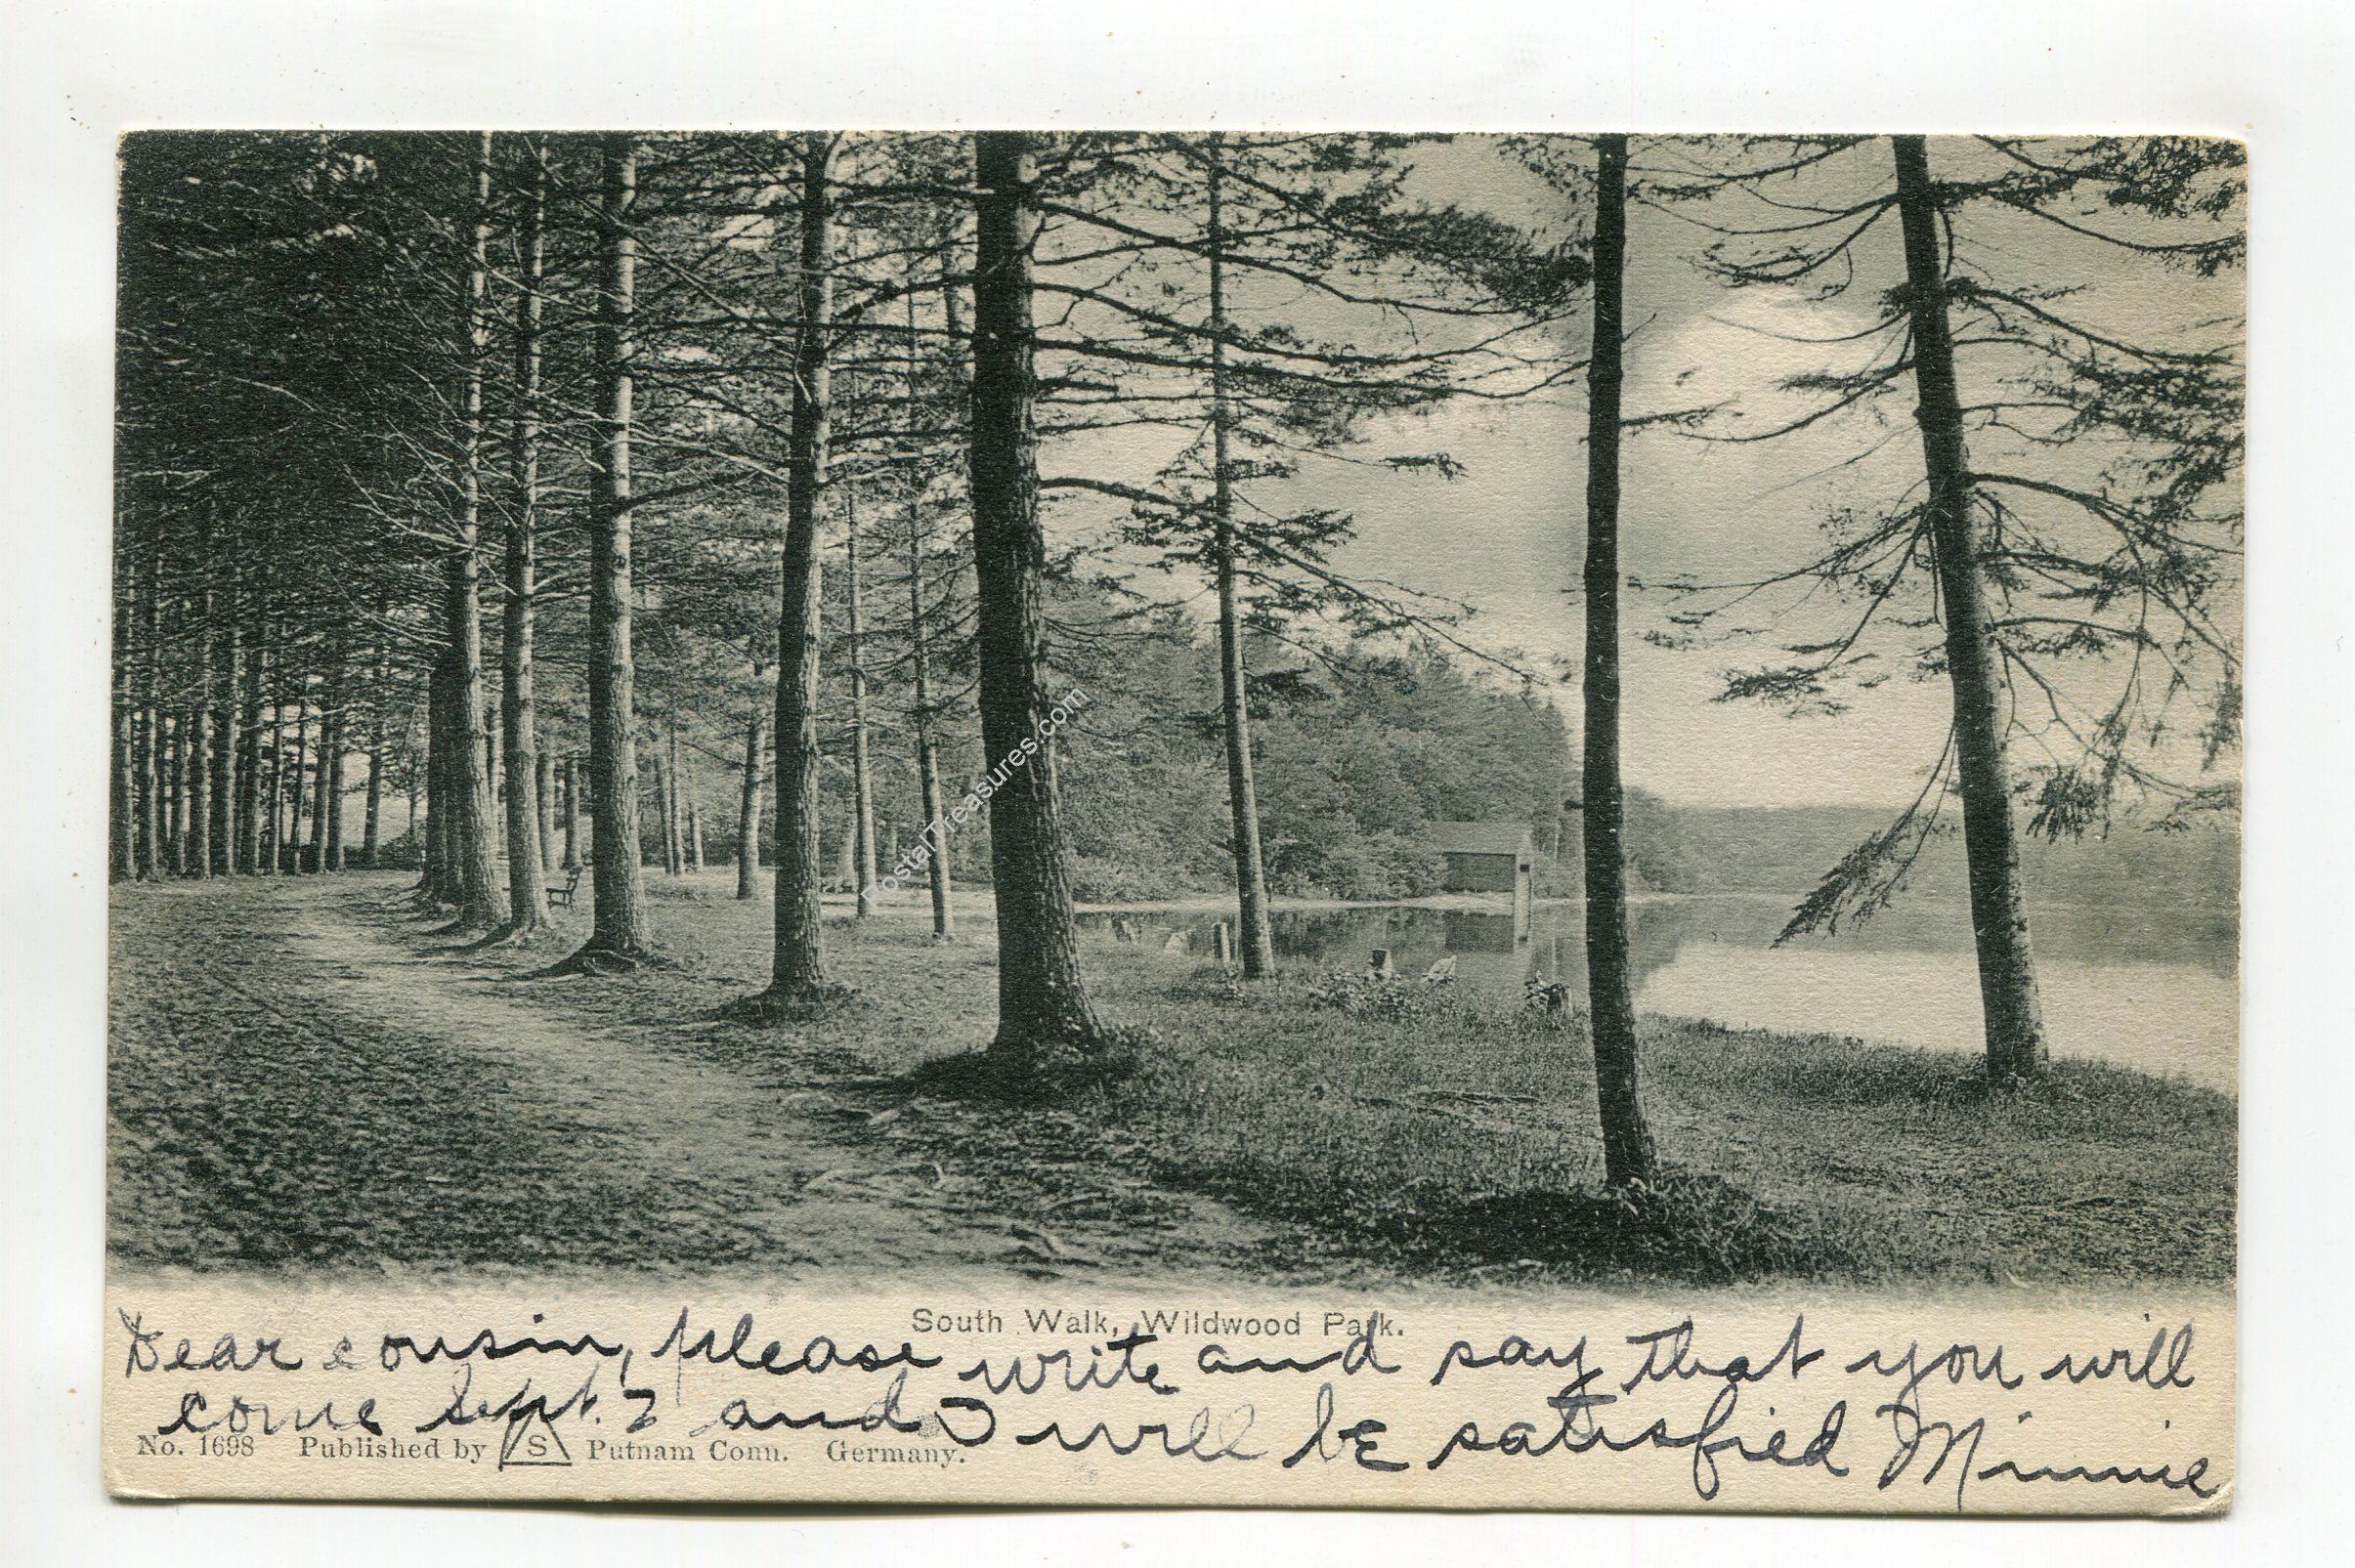 PostalTreasures.com
South Walk, Wildwood Park.
Dear cousin, please write and say that you will
come Sept. 2 and I will be satisfied Minnie
No. 1698 Published by S Putnam Conn. Germany.